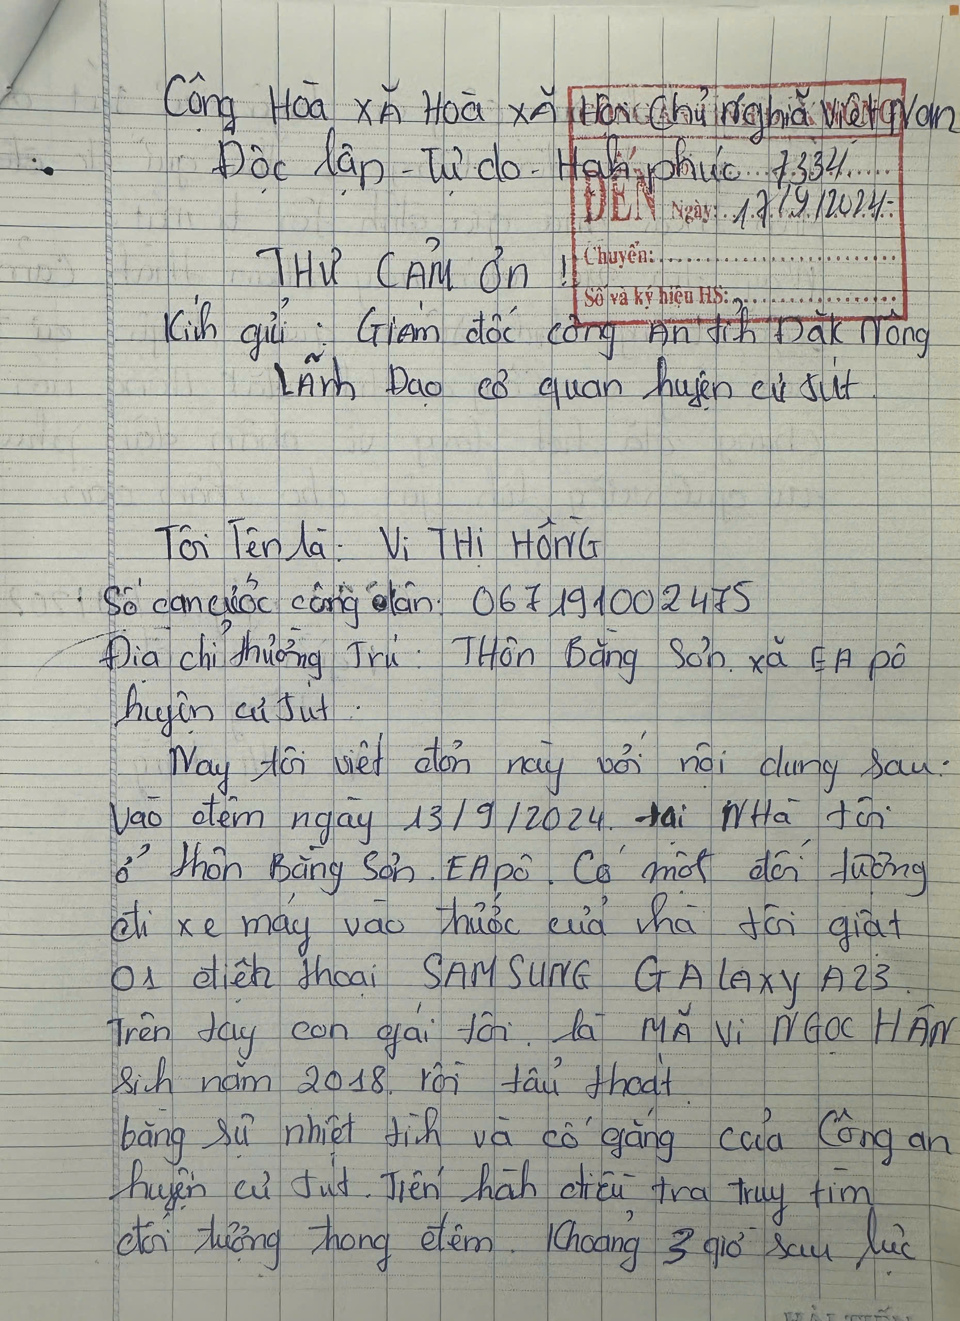 Cộng Hoà xĂ Hoà xĂ Hôi Chủ Nghiã Việt Nam
Độc lập - Tự do - Hạh phúc 7334
ĐẾN Ngày: 17/9/2024
THƯ CẢM ƠN !
Chuyển:
Số và ký hiệu HS:
Kíh gửi : GiÁm đốc công An tỉh Đăk Nông
LÃNh Đạo cơ quan huyện cư Jút.
Tôi Tên là: Vi THỊ HỒNG
Số căn cước công dân: 067191002475
Địa chỉ thường Trú: THôn Bằng Sơn. xã EA pô
huyện cư Jut.
Nay tôi viết đơn này với nội dung sau:
Vào đêm ngày 13/9/2024. tại NHà tôi
ở thôn Bằng Sơn. EApô. Có một đối tượng
đi xe máy vào trước cửa nhà tôi giật
01 điện thoại SAMSUNG GALAxy A23.
Trên tay con gái tôi. là MÃ Vi NGọc HÂN
sih năm 2018. rồi tẩu thoát.
bằng sự nhiệt tìh và cố gắng của Công an
huyện cư Jút. Tiến hàh điều tra truy tìm
đối tượng trong đêm. Khoảng 3 giờ sau lực